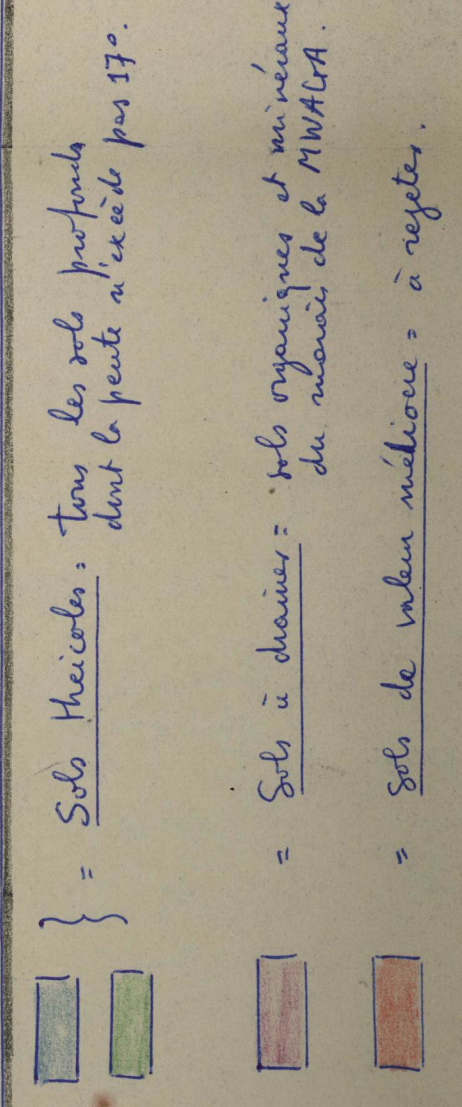 } = Sols théicoles = tous les sols profonds
dont la pente n'excède pas 17°.
= Sols à drainer = sols organiques et minéraux
du marais de la MWAGA.
= Sols de valeur médiocre = à rejeter.